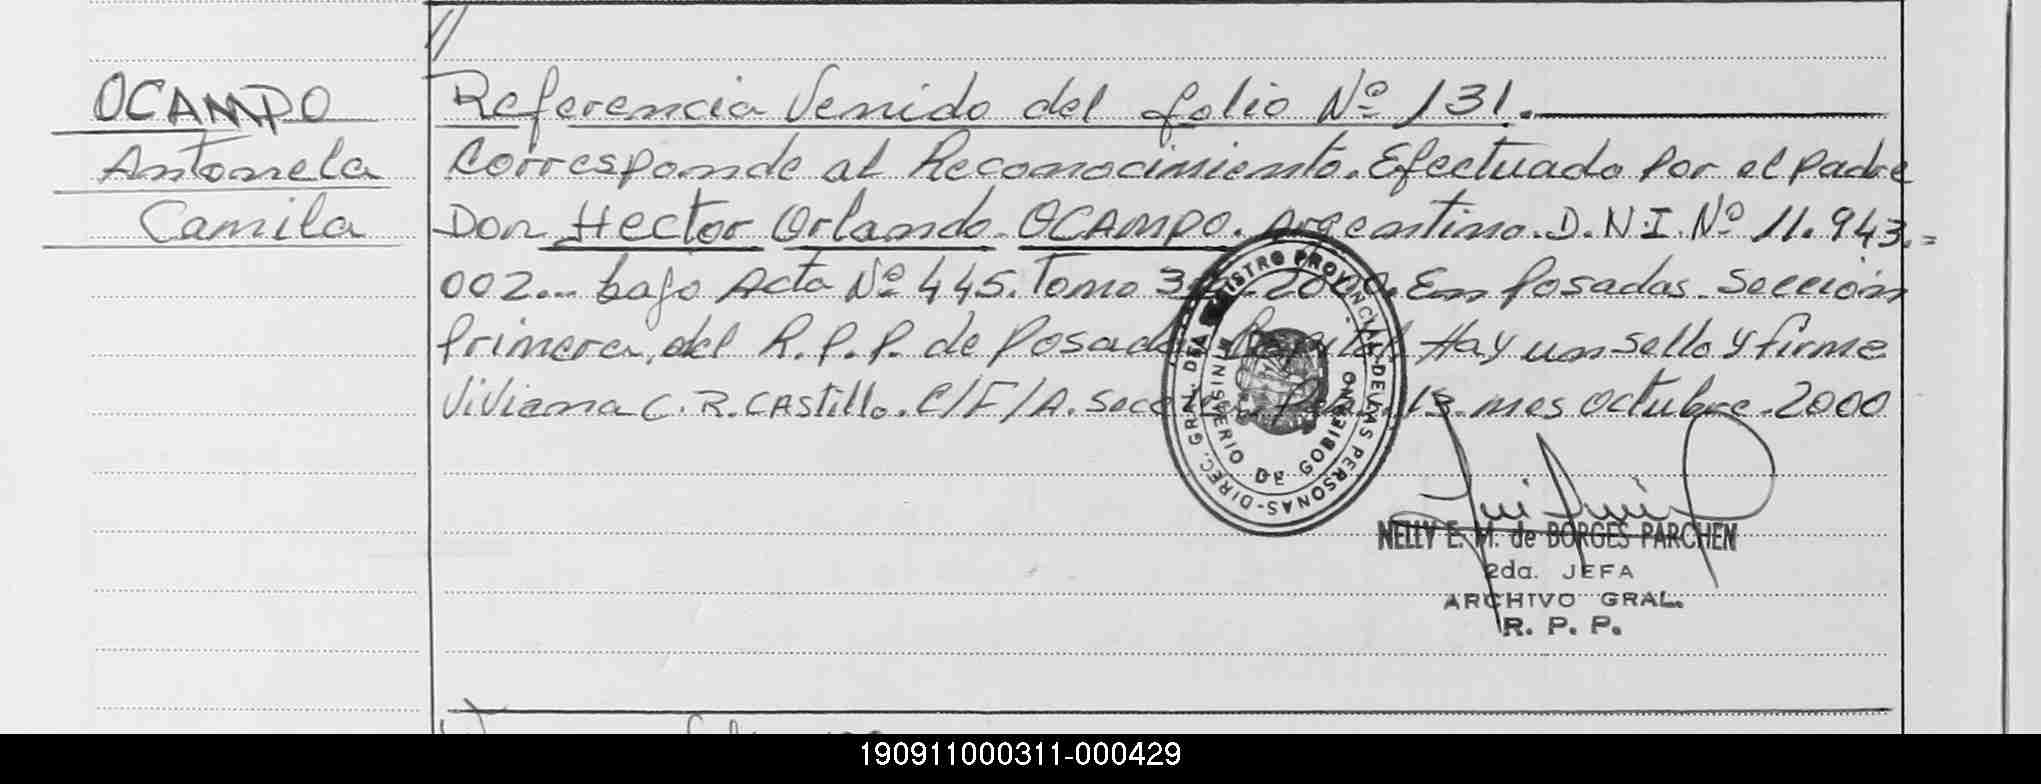 //
OCAMPO
Antonela
Camila
Referencia Venido del folio Nº 131.
Corresponde al Reconocimiento. Efectuado por el padre
Don Hector Orlando OCAMPO. Argentino. D.N.I. Nº 11.943.=
002... bajo Acta Nº 445. Tomo 2000. En Posadas. Sección
Primera, del R.P.P. de Posadas Hay un sello y firme
Viviana C. R. CASTillo. C/F/A. 13. mes octubre. 2000
DIREC. GRAL. DEL REGISTRO PROVINCIAL DE LAS PERSONAS-
MINISTERIO DE GOBIERNO
NELLY E. M. de BORGES PARCHEM
2da. JEFA
ARCHIVO GRAL.
R. P. P.
190911000311-000429